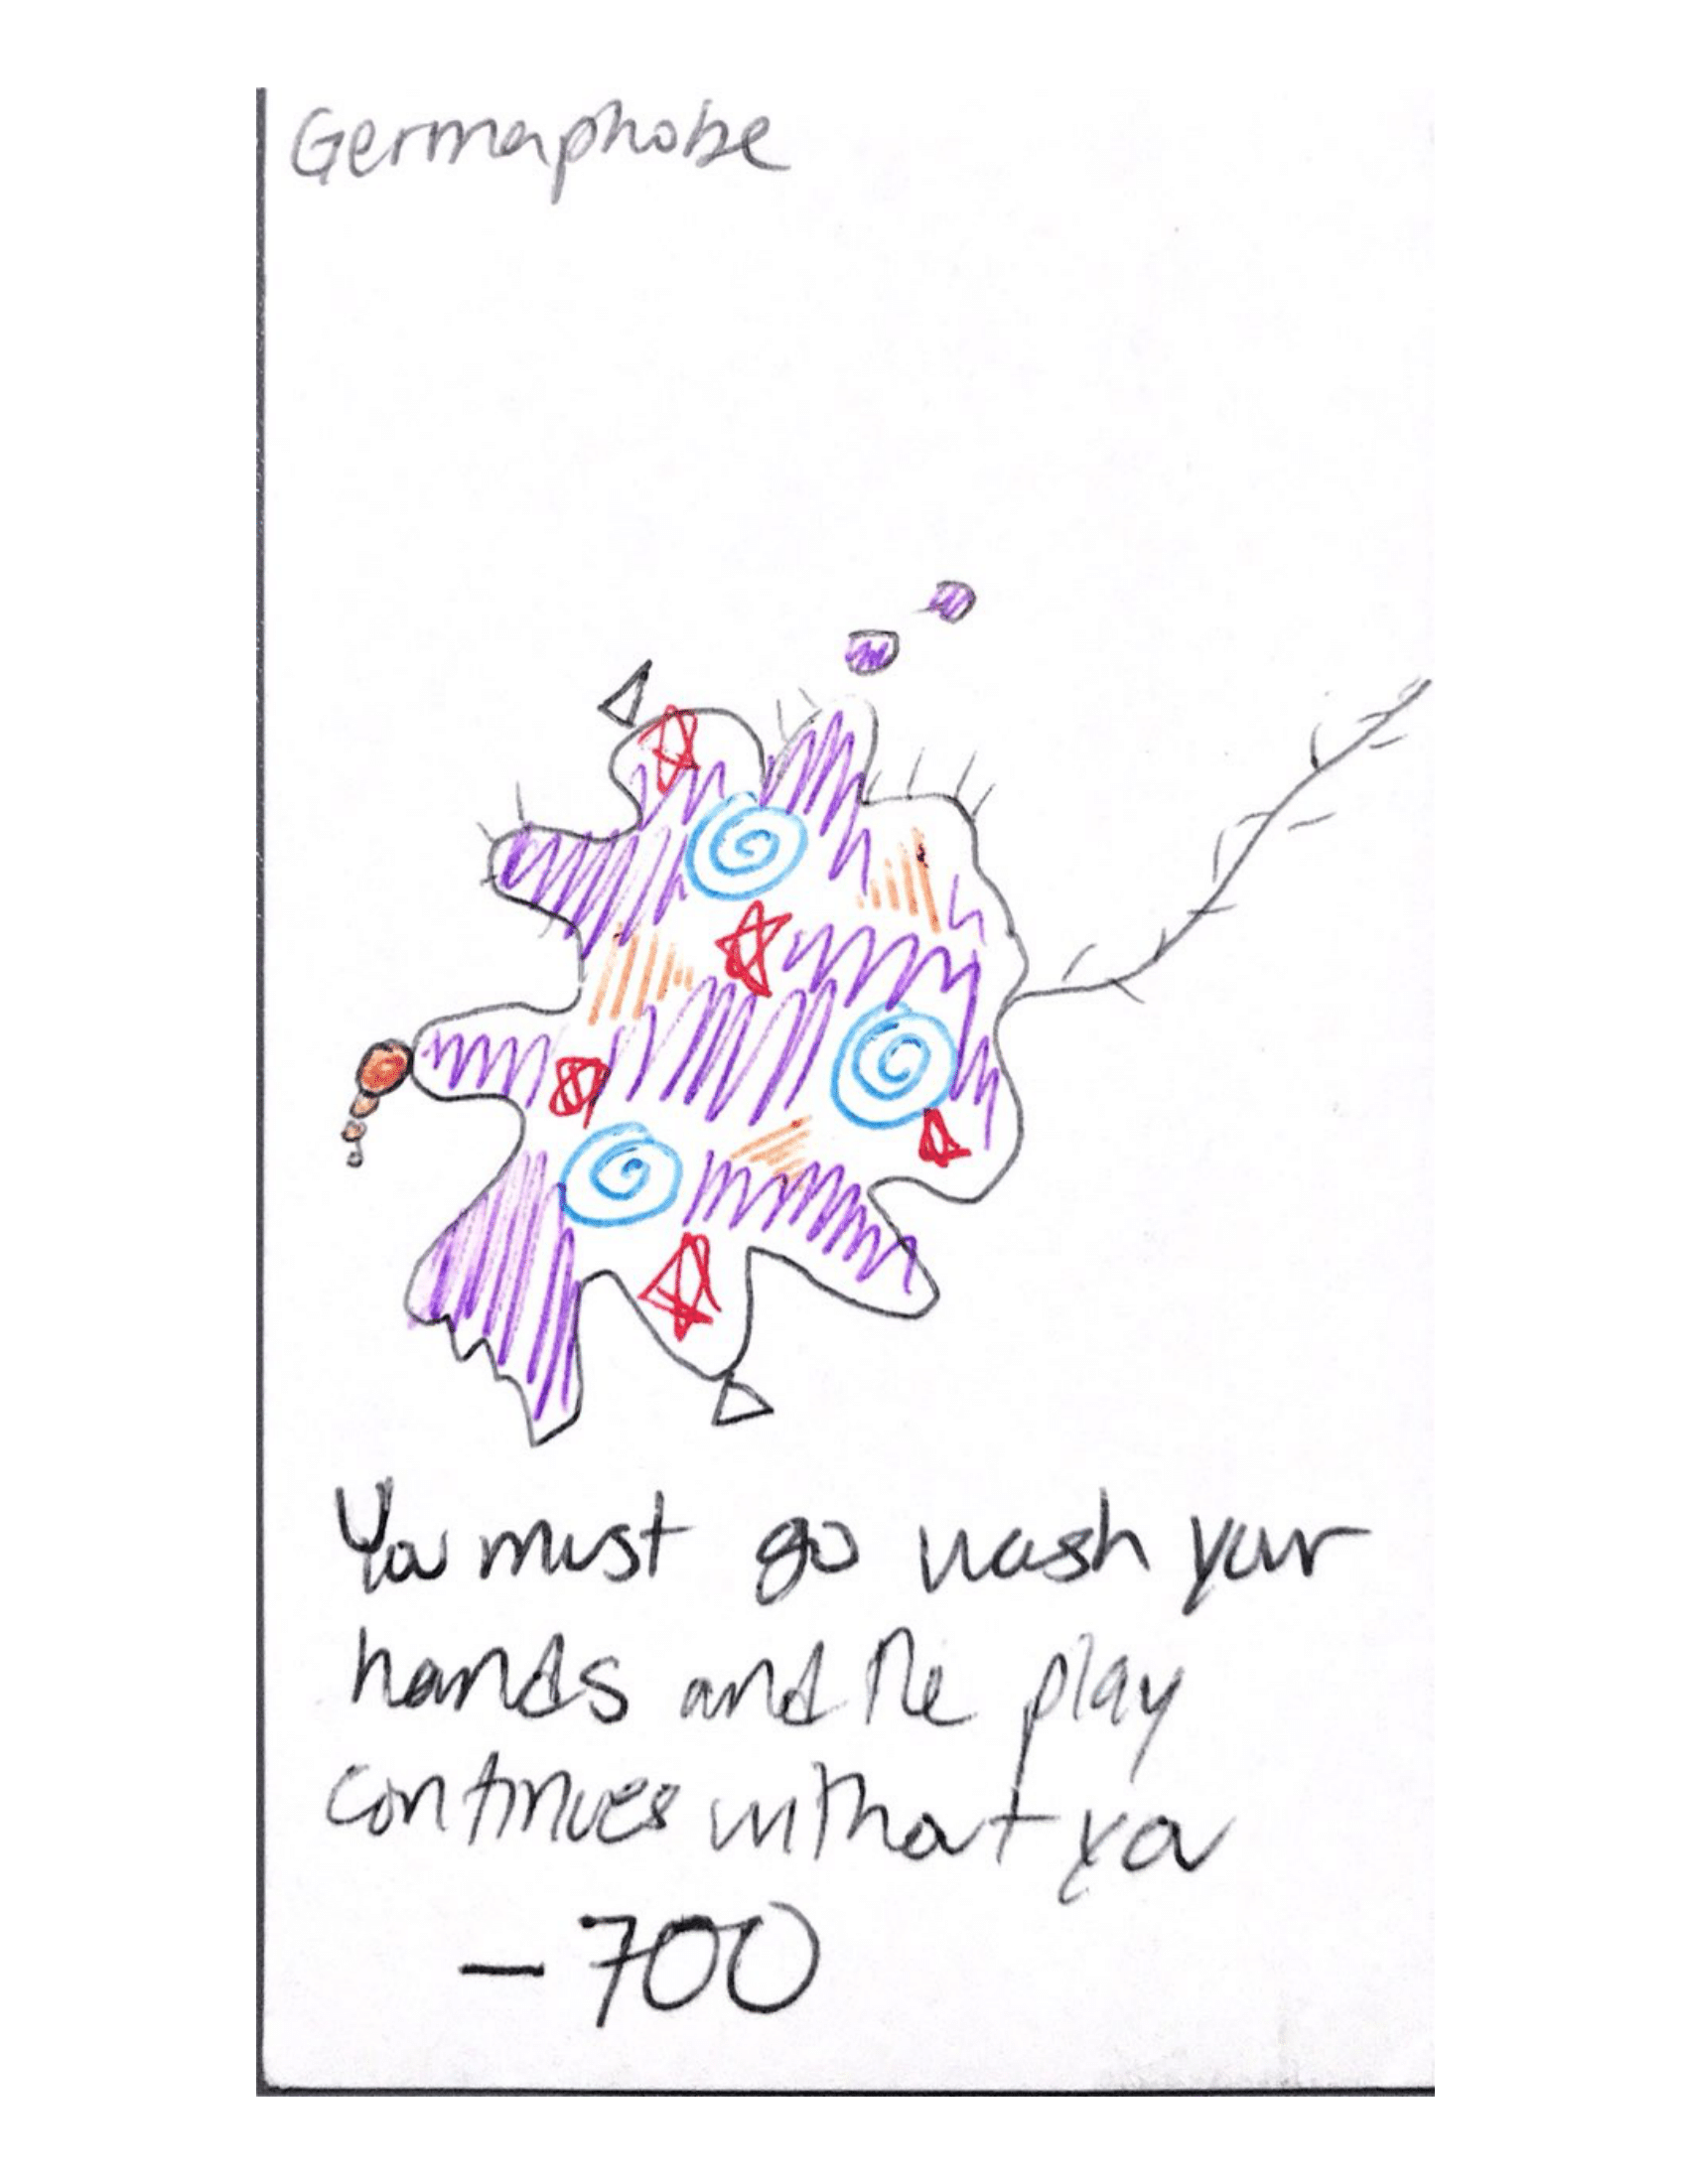 Germaphobe
You must go wash your
hands and the play
continues without you
- 700